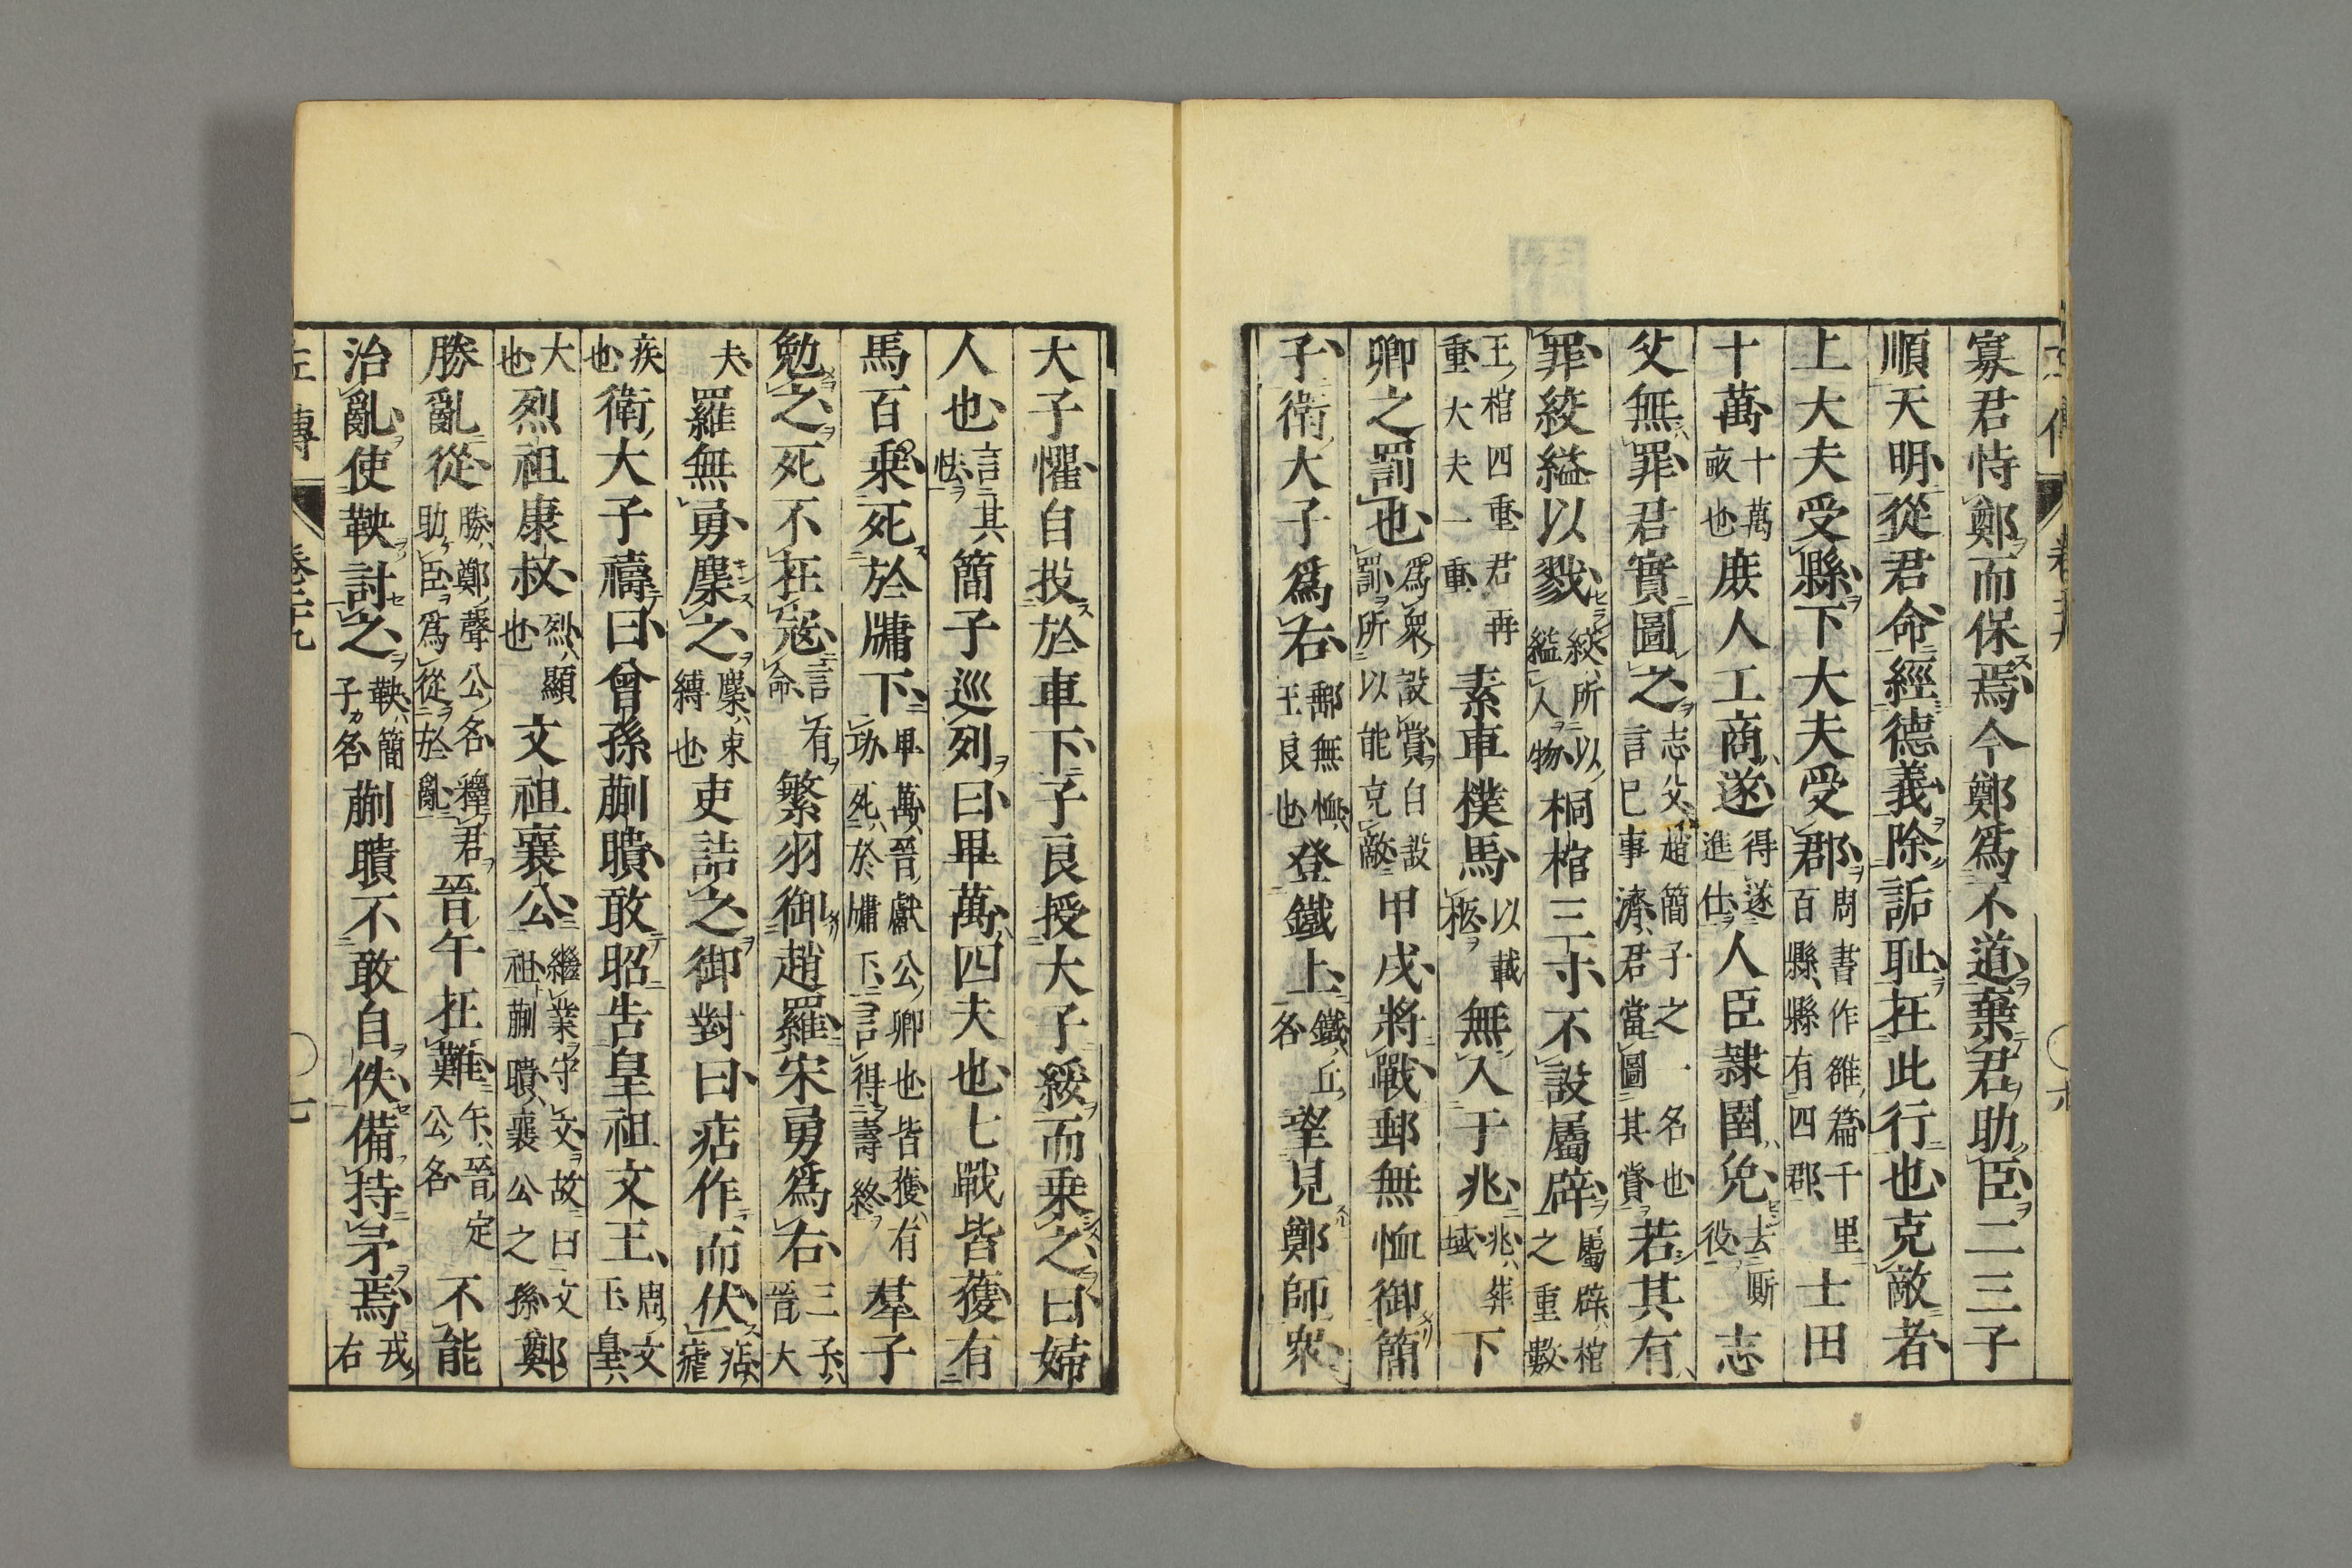 寡君恃鄭而保焉今鄭爲不道棄君助臣二三子
順天明從君命經德義除詬耻在此行也克敵者
上大夫受縣下大夫受郡周書作雒篇千里百縣縣有四郡士田
十萬十萬畝也庶人工商遂得遂進仕人臣隸圉免去厮役志
父無罪君實圖之志父趙簡子之一名也言巳事濟君當圖其賞若其有
罪絞縊以戮絞所以縊人物桐棺三寸不設屬辟屬辟棺之重數
王棺四重君再重大夫一重素車樸馬以載柩無入于兆兆葬域下
卿之罰也爲衆設賞自設罰所以能克敵甲戌將戰郵無恤御簡
子衛大子爲右郵無恤王良也登鐵上鐵丘名望見鄭師衆
大子懼自投於車下子良授大子綏而乗之曰婦
人也言其怯簡子巡列曰畢萬匹夫也七戰皆獲有
馬百乗死於牖下畢萬晉獻公卿也皆獲有功死於牖下言得壽終羣子
勉之死不在寇言有命繁羽御趙羅宋勇爲右三子晉大
夫羅無勇麇之麇束縛也吏詰之御對曰痁作而伏痁瘧
疾也衛大子禱曰曾孫蒯聵敢昭告皇祖文王周文王皇
大也烈祖康叔烈顯也文祖襄公繼業守文故曰文祖蒯聵襄公之孫鄭
勝亂從勝鄭聲公名釋君助臣爲從於亂晉午在難午晉定公名不能
治亂使鞅討之鞅簡子名蒯聵不敢自佚備持矛焉戎右
左傳
卷二十九
七